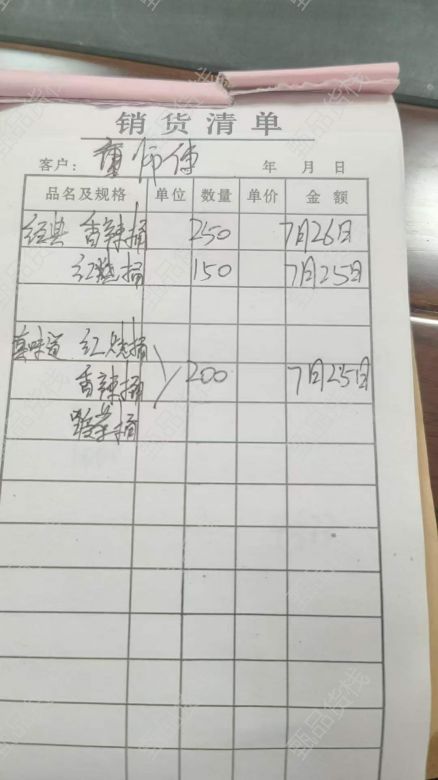 销货清单
客户：康师傅 年 月 日
品名及规格 单位 数量 单价 金额
经典 香辣桶 250 7月26日
红烧桶 150 7月25日
真味道 红烧桶
香辣桶 200 7月25日
酸菜桶
甄品货栈